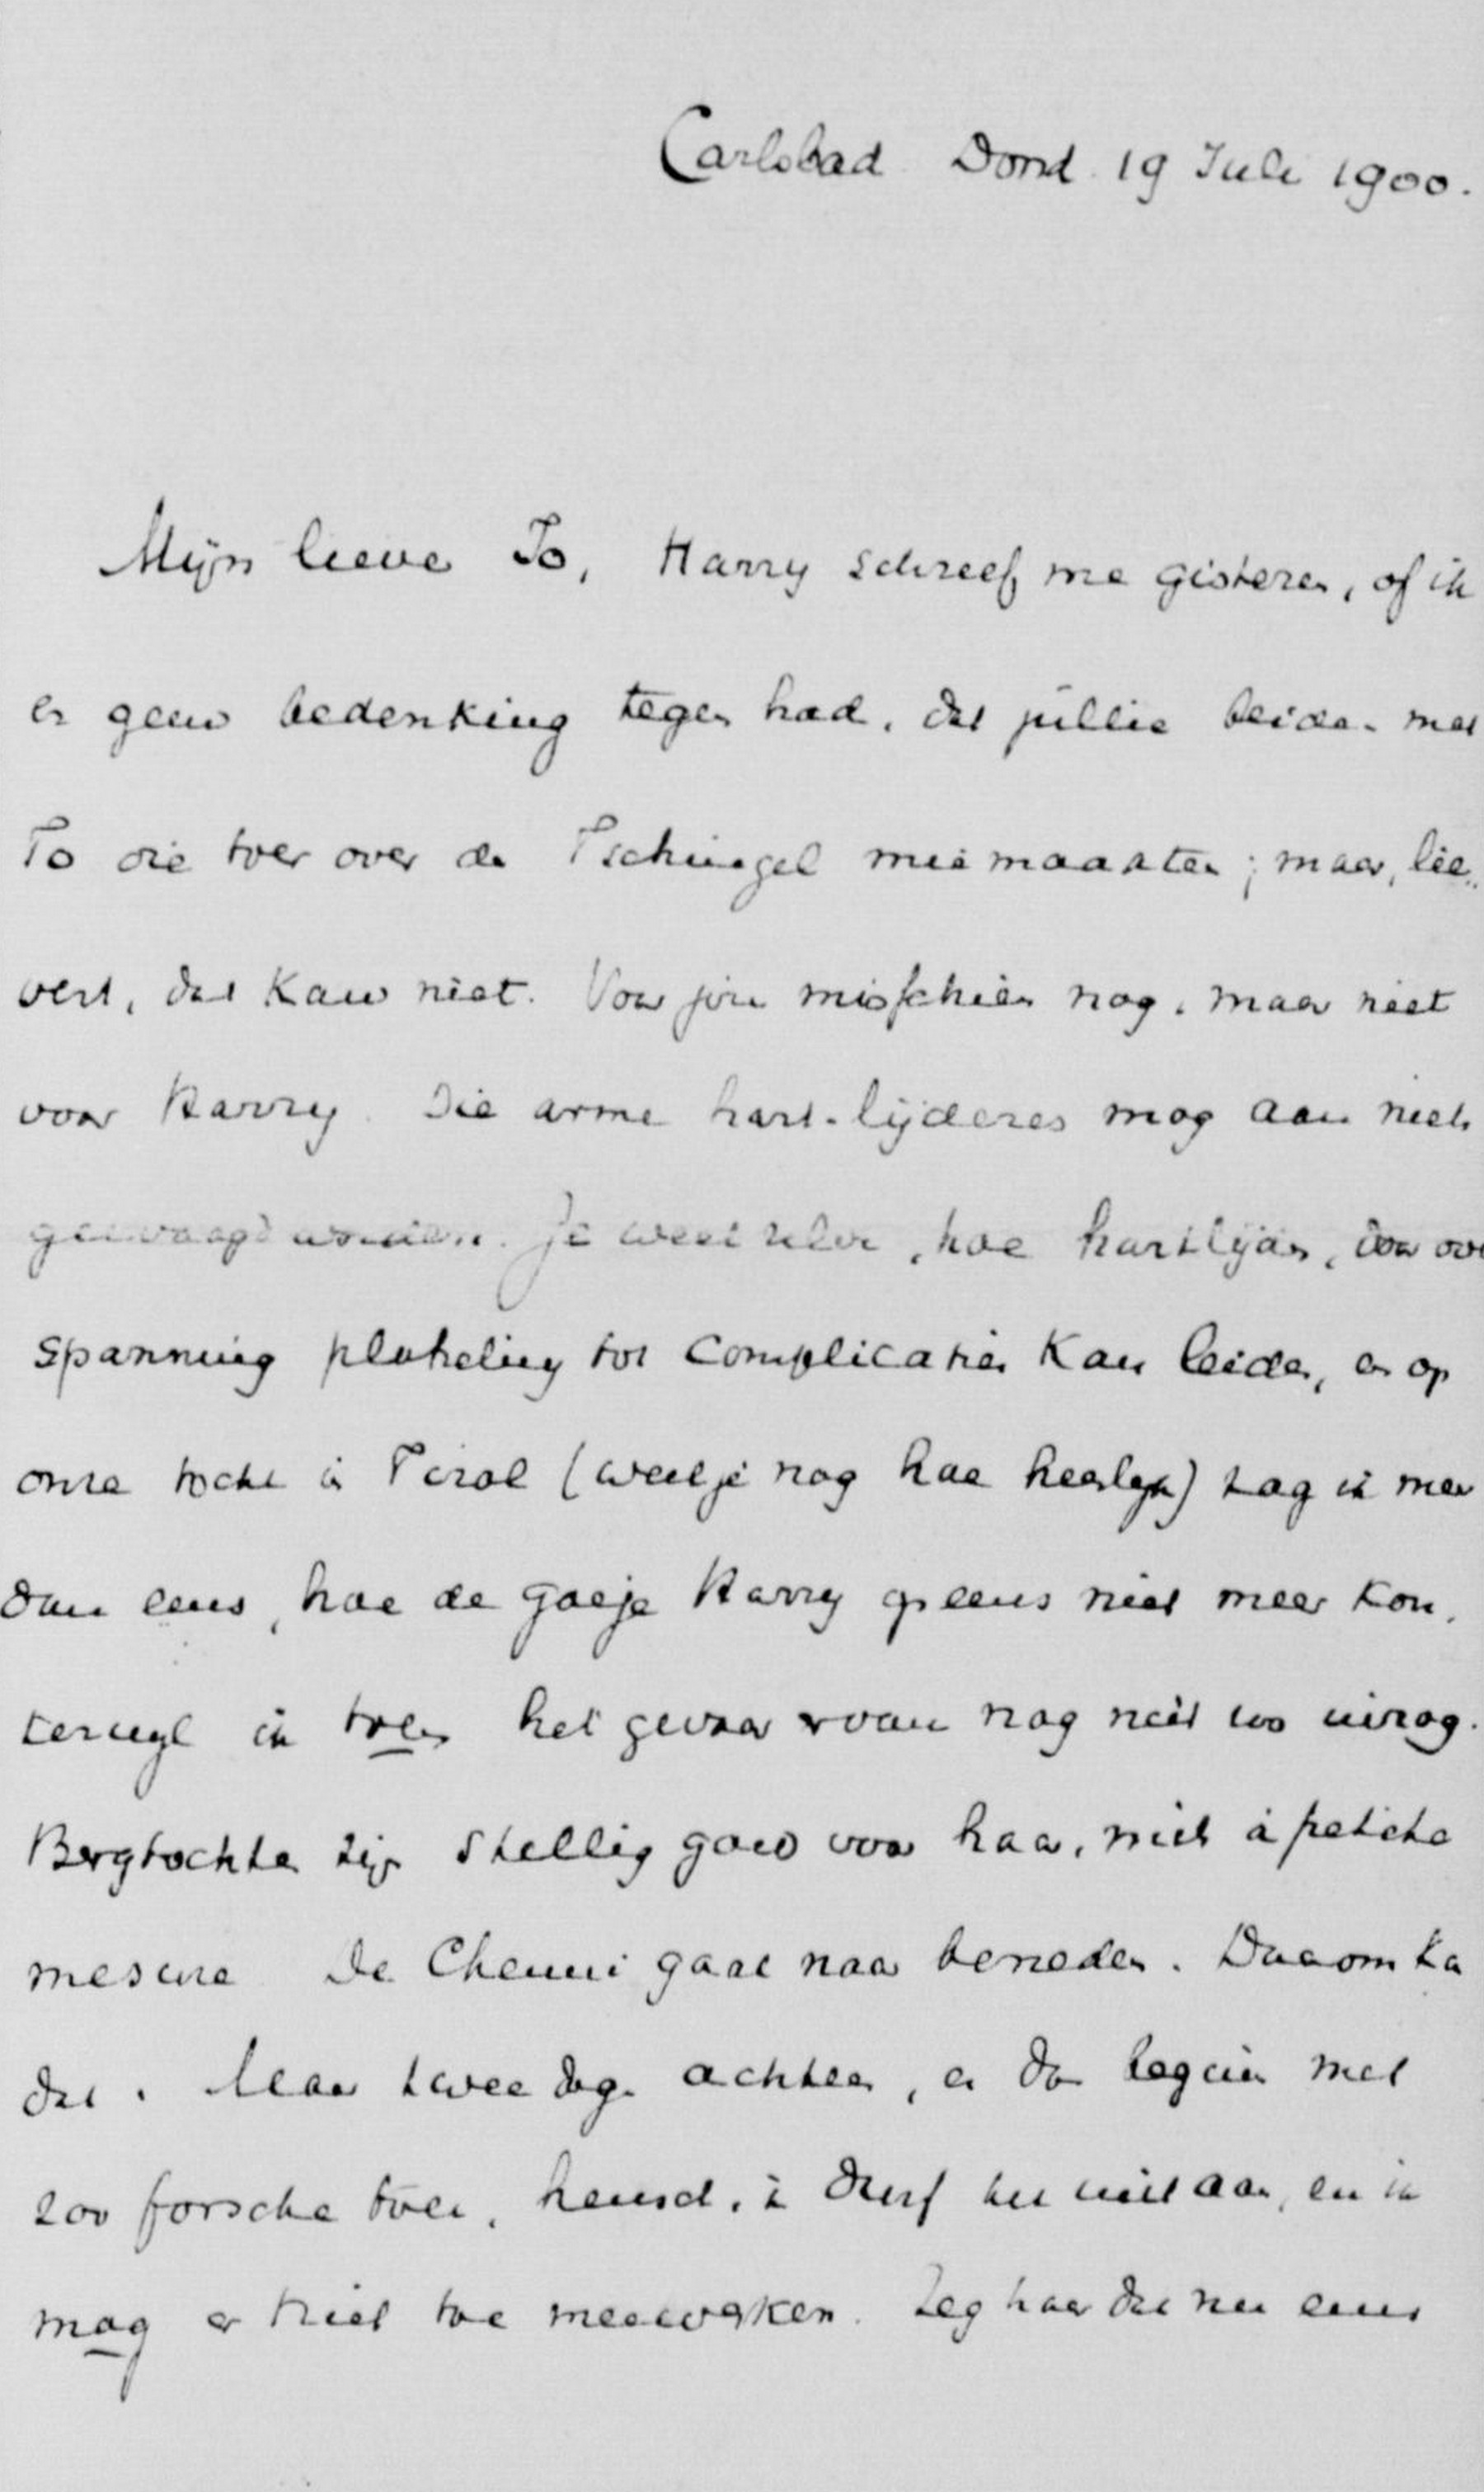 Carlsbad Dond. 19 Juli 1900.
Mijn lieve Jo, Harry schreef me gisteren, of ik
er geen bedenking tegen had, dat jullie beiden met
To die toer over de Tschingel meemaakten; maar, lie„
verd, dat kan niet. Voor jou misschien nog, maar niet
voor Harry. Die arme hart-lijderes mag aan niets
gewaagd worden. Je weet zelve, hoe hartlijden, door over
spanning plotseling tot complicaties kan leiden, en op
onze tocht in Tirol (weet je nog hoe heerlijk) zag ik meer
dan eens, hoe de goeje Harry opeens niet meer kon,
terwijl ik toen het gevaar ervan nog niet zoo inzag.
Bergtochten zijn stellig goed voor haar, mits à petite
mesure. De Chemin gaat naar beneden. Daarom ka
dat. Maar twee dagen achtereen, en dan begin met
zoo'n forsche toer, heusch, ik durf het niet aan, en ik
mag er niet toe meewerken. Zeg haar dat nu eens